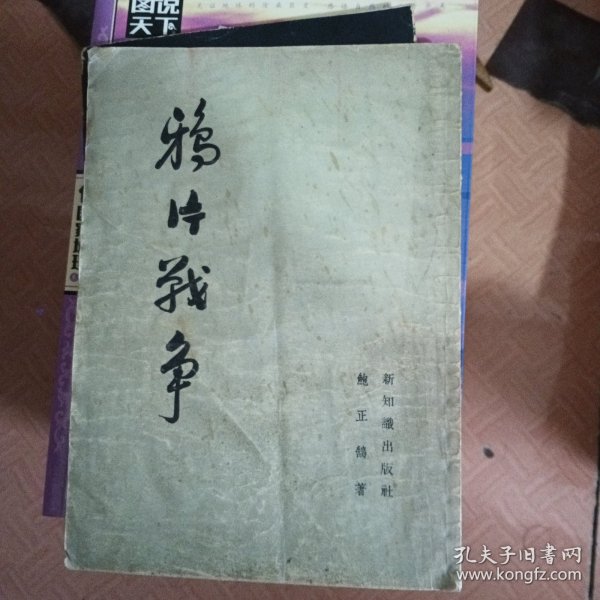 图说
天下
鴉片戰争
新知識出版社
鮑正鵠著
孔夫子旧书网
www.kongfz.com